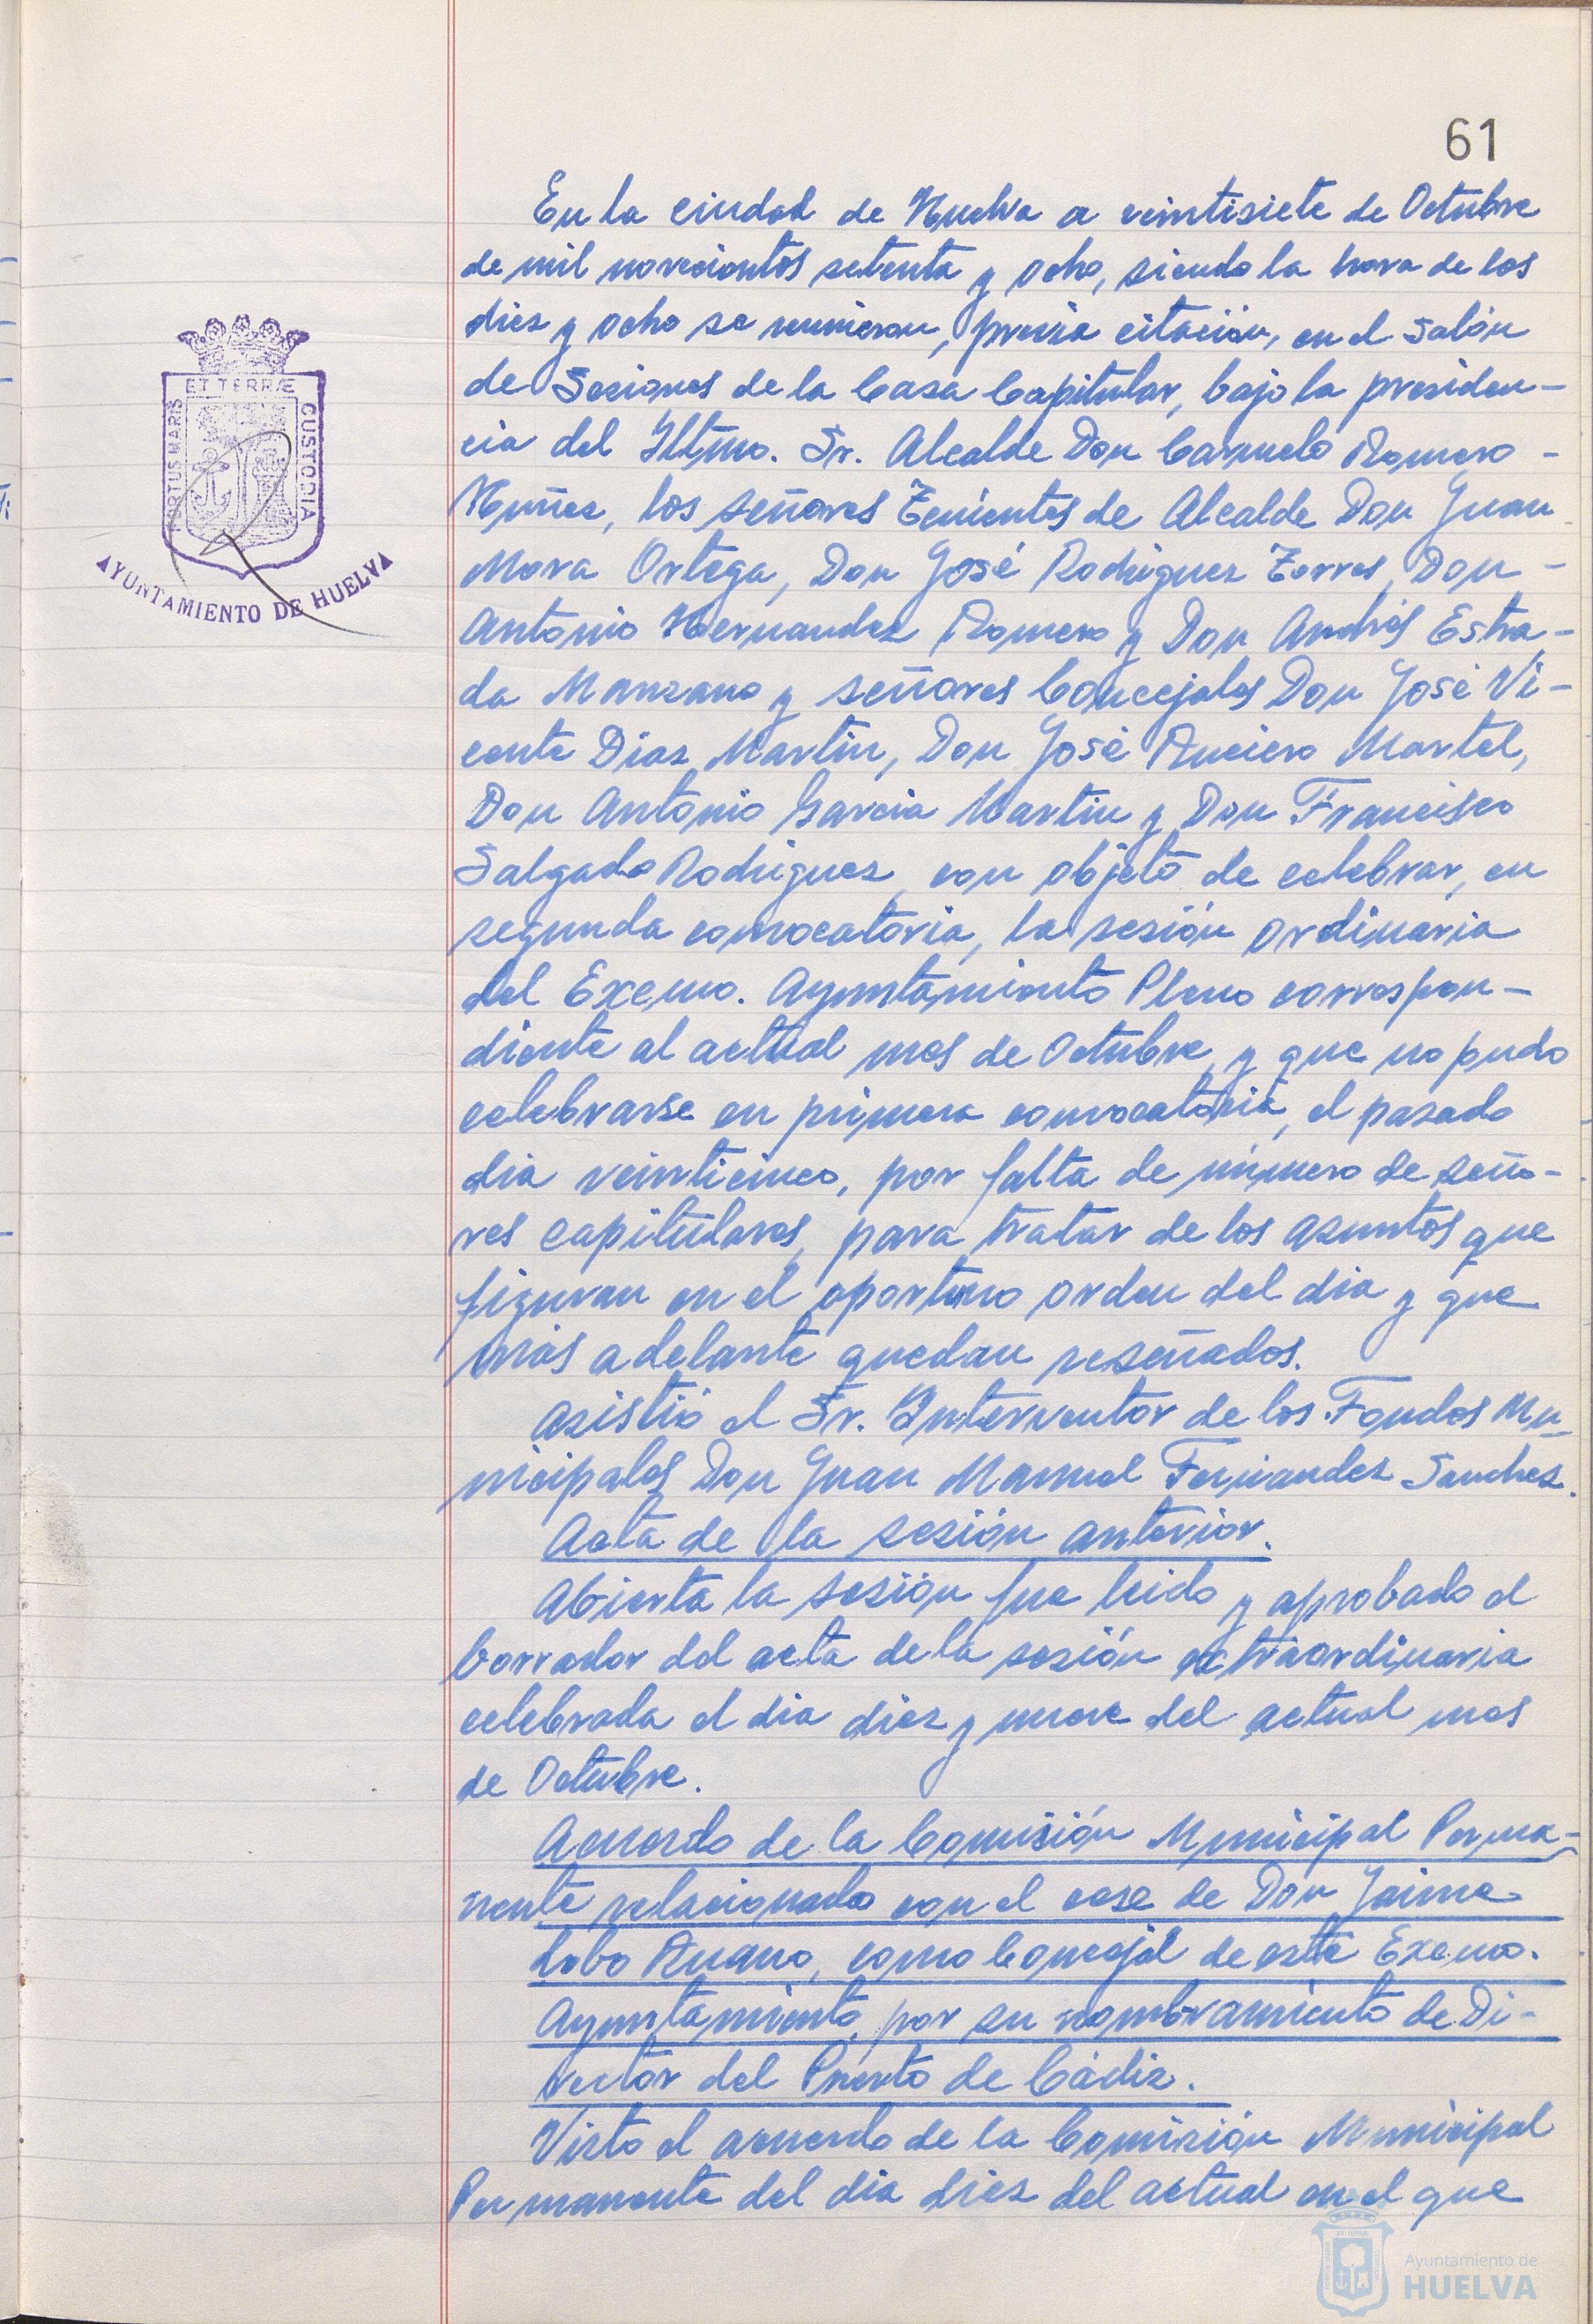 61
En la ciudad de Huelva a veintisiete de Octubre
de mil novecientos setenta y ocho, siendo la hora de los
diez y ocho se reunieron, previa citación, en el Salón
de Sesiones de la Casa Capitular, bajo la presiden-
cia del Iltmo. Sr. Alcalde Don Carmelo Romero -
Núñez, los señores Tenientes de Alcalde Don Juan
Mora Ortega, Don José Rodriguez Torres, Don -
Antonio Hernandez Romero y Don Andrés Estra-
da Manzano y señores Concejales Don José Vi-
cente Diaz Martin, Don José Ruciero Martel,
Don Antonio Garcia Martin y Don Francisco
Salgado Rodriguez, con objeto de celebrar, en
segunda convocatoria, la sesión ordinaria
del Excmo. Ayuntamiento Pleno correspon-
diente al actual mes de Octubre, y que no pudo
celebrarse en primera convocatoria, el pasado
dia veinticinco, por falta de número de seño-
res capitulares, para tratar de los asuntos que
figuran en el oportuno orden del dia y que
más adelante quedan reseñados.
Asistió el Sr. Interventor de los Fondos Mu-
nicipales Don Juan Manuel Fernandez Sanchez.
Acta de la sesión anterior.
Abierta la sesión fue leido y aprobado el
borrador del acta de la sesión extraordinaria
celebrada el dia diez y nueve del actual mes
de Octubre.
Acuerdo de la Comisión Municipal Perma-
nente relacionado con el cese de Don Jaime
Lobo Ruano, como Concejal de este Excmo.
Ayuntamiento, por su nombramiento de Di-
rector del Puerto de Cádiz.
Visto el acuerdo de la Comisión Municipal
Permanente del dia diez del actual en el que
ET TERRÆ
PORTUS MARIS
CUSTODIA
AYUNTAMIENTO DE HUELVA
Ayuntamiento de
HUELVA